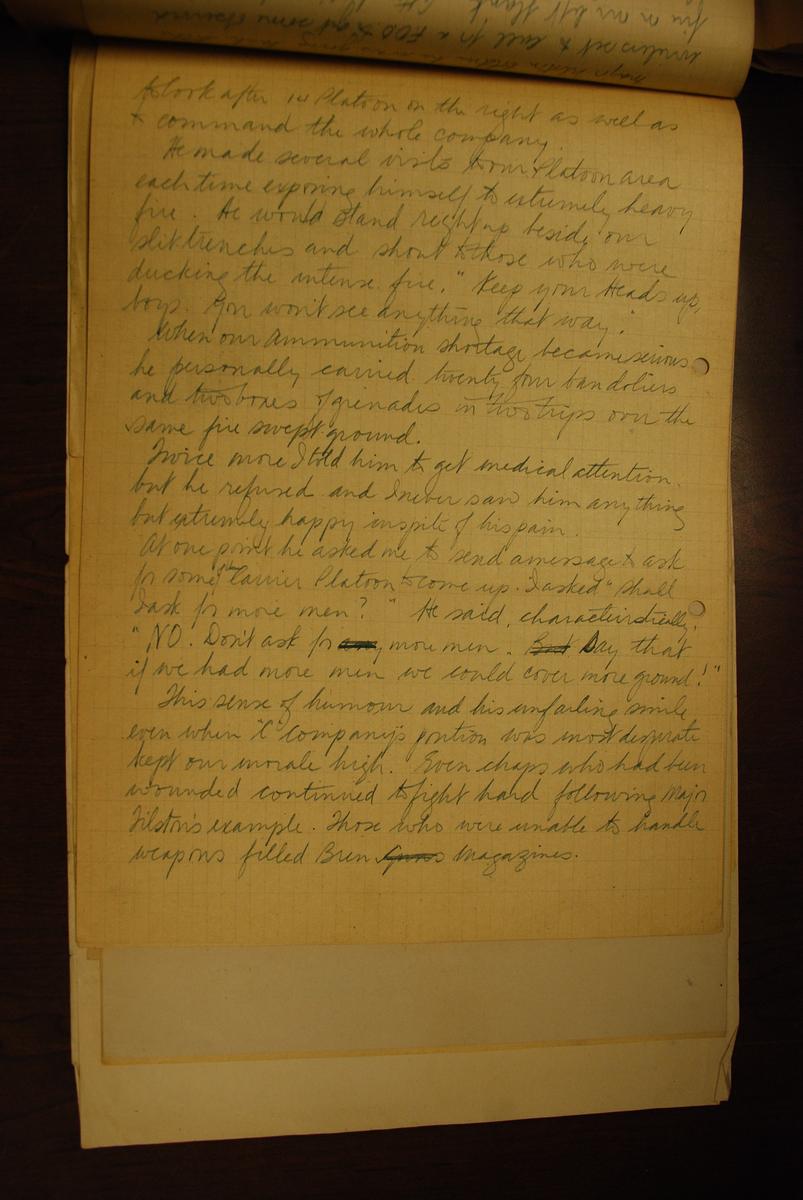 to look after 14 Platoon on the right as well as
& command the whole company.
He made several visits to our Platoon area
each time exposing himself to extremely heavy
fire. He would stand right up beside our
slit trenches and shout to those who were
ducking the intense fire. "Keep your Heads up,
boys. You won't see anything that way."
When our ammunition shortage became serious
he personally carried twenty four bandoliers
and two boxes of grenades in two trips over the
same fire swept ground.
Twice more I told him to get medical attention.
but he refused and I never saw him anything
but extremely happy inspite of his pain.
At one point he asked me to send a message & ask
for some Carrier Platoon to come up. I asked "shall
I ask for more men?" He said, characteristically,
"NO. Don't ask for any more men. But Say that
if we had more men we could cover more ground!"
This sense of humour and his unfailing smile
even when "C" company's position was most desperate
kept our morale high. Even chaps who had been
wounded continued to fight hard following Major
Tilston's example. Those who were unable to handle
weapons filled Bren Guns Magazines.